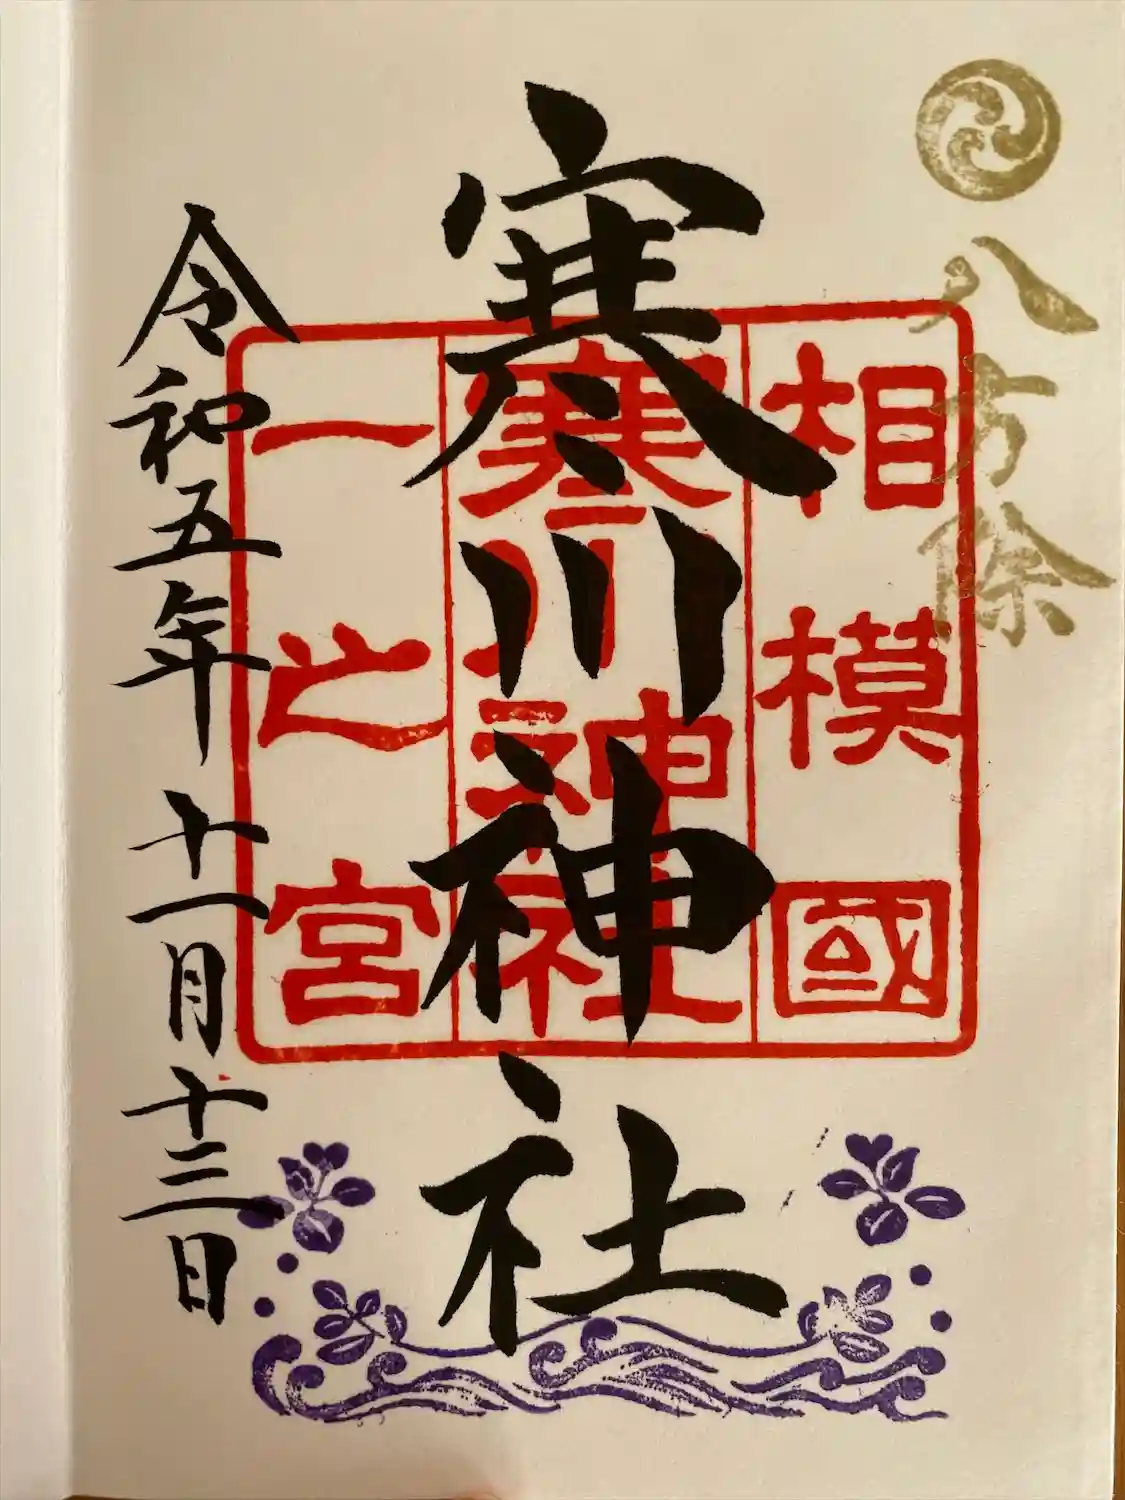 八方除
相模國
寒川神社
一之宮
寒川神社
令和五年十一月十三日